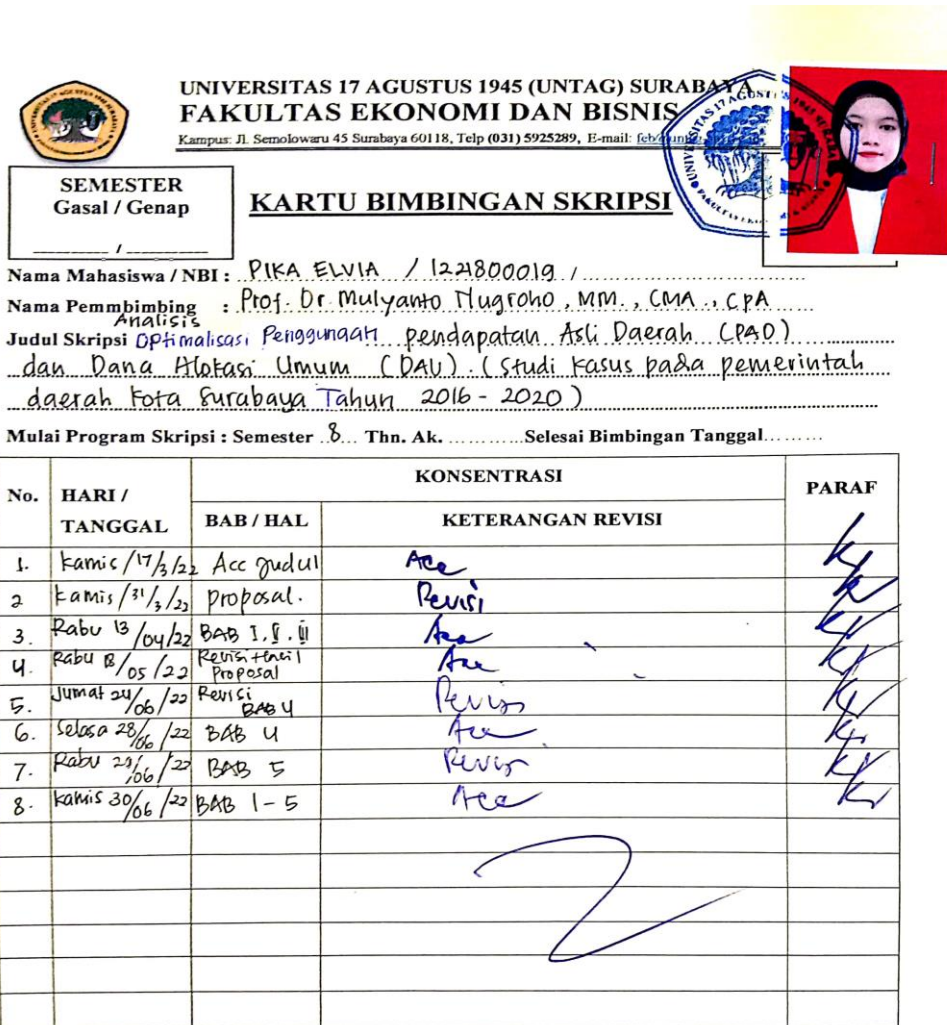 UNIVERSITAS 17 AGUSTUS 1945 (UNTAG) SURABAYA
FAKULTAS EKONOMI DAN BISNIS
Kampus: Jl. Semolowaru 45 Surabaya 60118, Telp (031) 5925289, E-mail:
SEMESTER
Gasal / Genap
/
KARTU BIMBINGAN SKRIPSI
Nama Mahasiswa / NBI : PIKA ELVIA / 1221800019 /
Nama Pemmbimbing : Prof. Dr. Mulyanto Nugroho, MM., CMA., CPA
Analisis
Judul Skripsi Optimalisasi Penggunaan pendapatan Asli Daerah (PAD)
dan Dana Alokasi Umum (DAU). (Studi kasus pada pemerintah
daerah Kota Surabaya Tahun 2016 - 2020)
Mulai Program Skripsi : Semester 8 Thn. Ak. ............Selesai Bimbingan Tanggal.........
No. HARI / TANGGAL KONSENTRASI PARAF
BAB / HAL KETERANGAN REVISI
1. Kamis /17/3/22 Acc Judul Acc
2 Kamis /31/3/22 proposal. Revisi
3. Rabu 13/04/22 BAB I. II. III Acc
4. Rabu /05/22 Revisi Proposal Acc
5. Jumat 24/06/22 Revisi BAB 4 Revisi
6. Selasa 28/06/22 BAB 4 Acc
7. Rabu 29/06/22 BAB 5 Revisi
8. Kamis 30/06/22 BAB 1-5 Acc